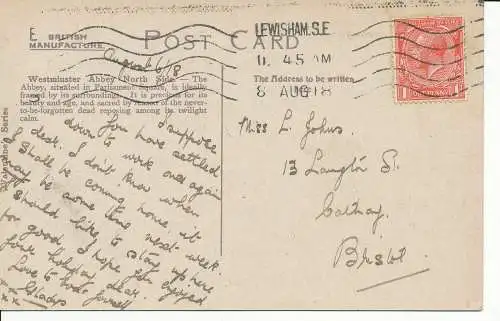 E. BRITISH
MANUFACTURE.
POST CARD
LEWISHAM. S.E
11. 45 AM
8 AUG 18
August 6/8
Westminster Abbey North Side. — The
Abbey, situated in Parliament Square, is ideally
framed by its surroundings. It is precious for its
beauty and age, and sacred by reason of the never-
to-be-forgotten dead reposing among its twilight
calm.
The Address to be written
Valentine's Series
I suppose
you have settled
down to work once again
dear. I don't know when
I shall be coming home, it
may be some time next week.
Should like to stay up here
for good. I hope you enjoyed
your holiday dear.
Love to
Gladys
xx
Miss L. Johns.
13 Langton St
Cathay.
Bristol